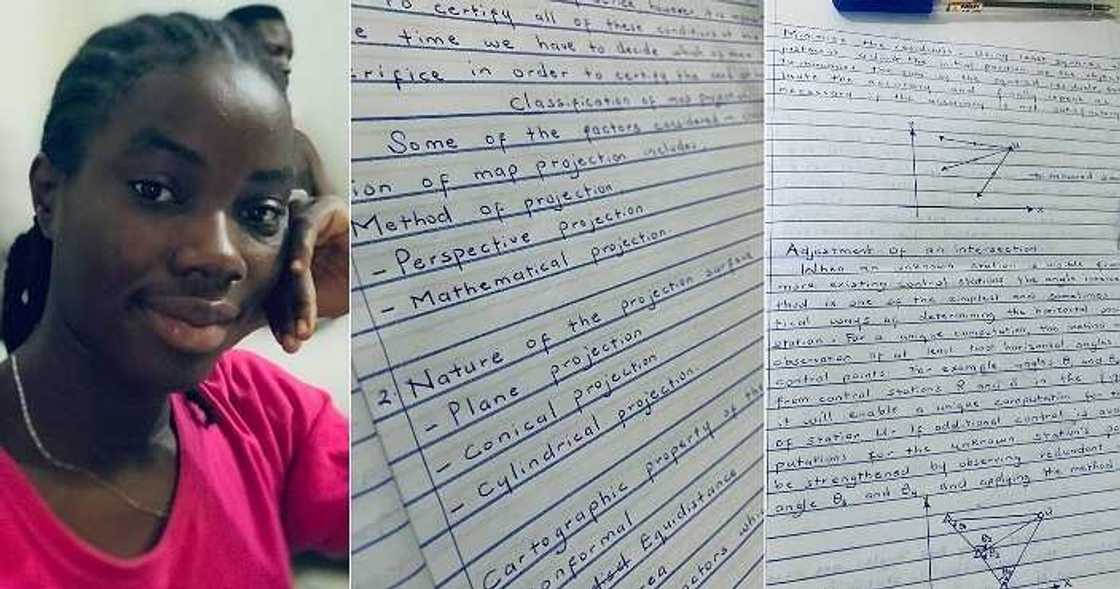 To certify all of these conditions at
e time we have to decide which of them
crifice in order to certify the
Classification of map
Some of the factors considered in
ion of map projection includes.
Method of projection
- Perspective projection
- Mathematical projection.
2. Nature of the projection surface
- Plane projection
- Conical projection
- Cylindrical projection.
Cartographic property of the
onformal
Equidistance
rea
actors
Minimize the residuals using least squares
adjust the initial position
to minimize the sum of the squared residuals
the accuracy and
necessary if the accuracy is not
Y
U
X
Adjustment of an intersection
When an unknown station is visible
more existing control stations the angle
thod is one of the simplest and sometimes
tical ways of determining the horizontal
station. For a unique computation, the method
observation of at least two horizontal angles
control points. For example angles θ and θ
from control stations R and S in the
it will enable a unique computation for
of station U. If additional control is
putations for the unknown station's
be strengthened by observing redundant
angle θ3 and θ4 and applying the method
Y
U
X